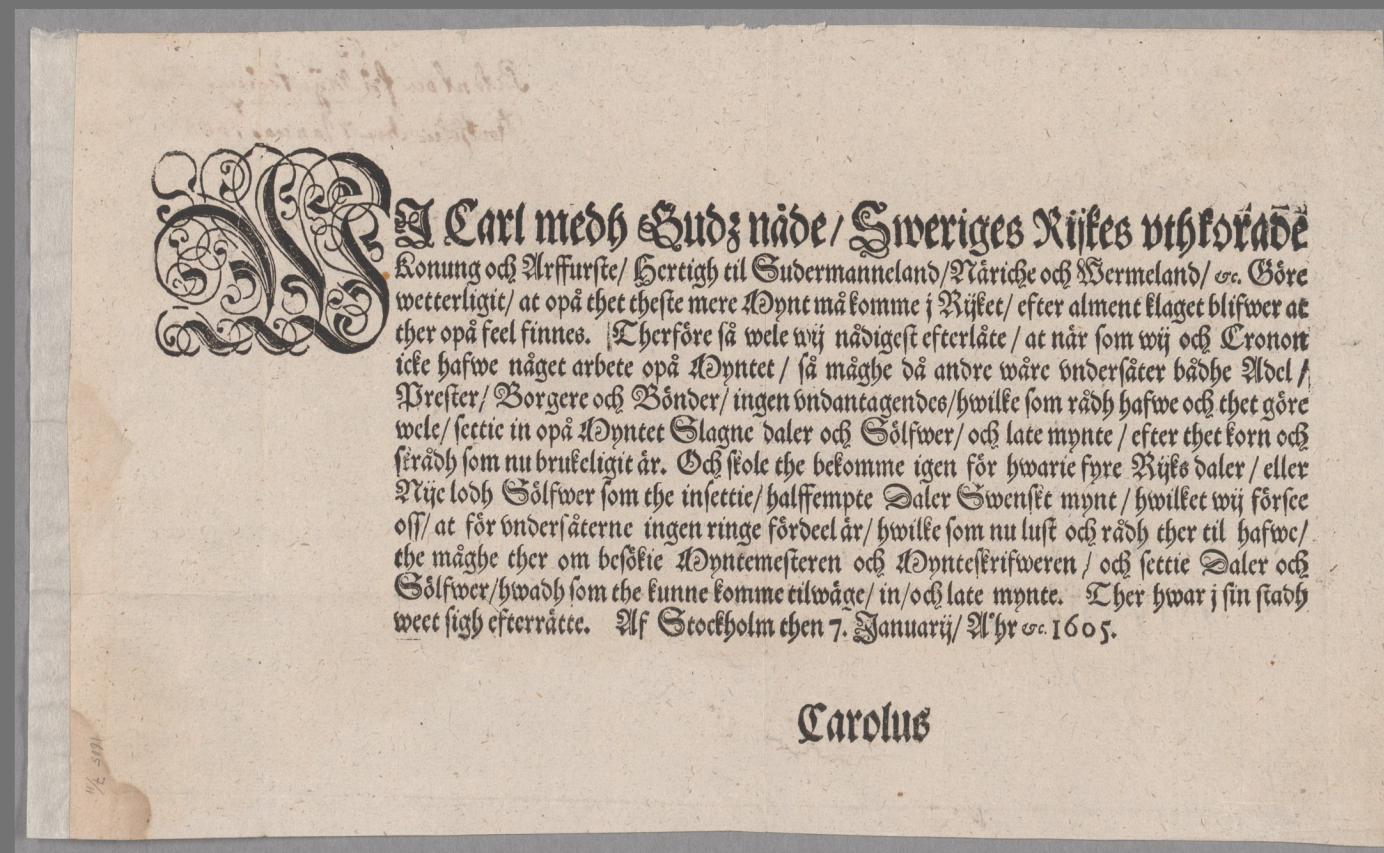 WJ Carl medh Gudz nåde/ Sweriges Rijkes vthkorade
Konung och Arffurste/ Hertigh til Sudermanneland/ Näriche och Wermeland/ &c. Göre
wetterligit/ at opå thet theste mere Mynt må komme j Rijket/ efter alment klaget blifwer at
ther opå feel finnes. Therföre så wele wij nådigest efterlåte/ at när som wij och Cronon
icke hafwe något arbete opå Myntet/ så måghe då andre wåre vndersåter bådhe Adel/
Prester/ Borgere och Bönder/ ingen vndantagendes/ hwilke som rådh hafwe och thet göre
wele/ settie in opå Myntet Slagne daler och Sölfwer/ och late mynte/ efter thet korn och
skrådh som nu brukeligit är. Och skole the bekomme igen för hwarie fyre Rijks daler/ eller
Nije lodh Sölfwer som the insettie/ halffempte Daler Swenskt mynt/ hwilket wij försee
oss/ at för vndersåterne ingen ringe fördeel är/ hwilke som nu lust och rådh ther til hafwe/
the måghe ther om besökie Myntemesteren och Mynteskrifweren/ och settie Daler och
Sölfwer/ hwadh som the kunne komme tilwäge/ in/ och late mynte. Ther hwar j sin stadh
weet sigh efterrätte. Af Stockholm then 7. Januarij/ Åhr &c. 1605.
Carolus
1605 7/1